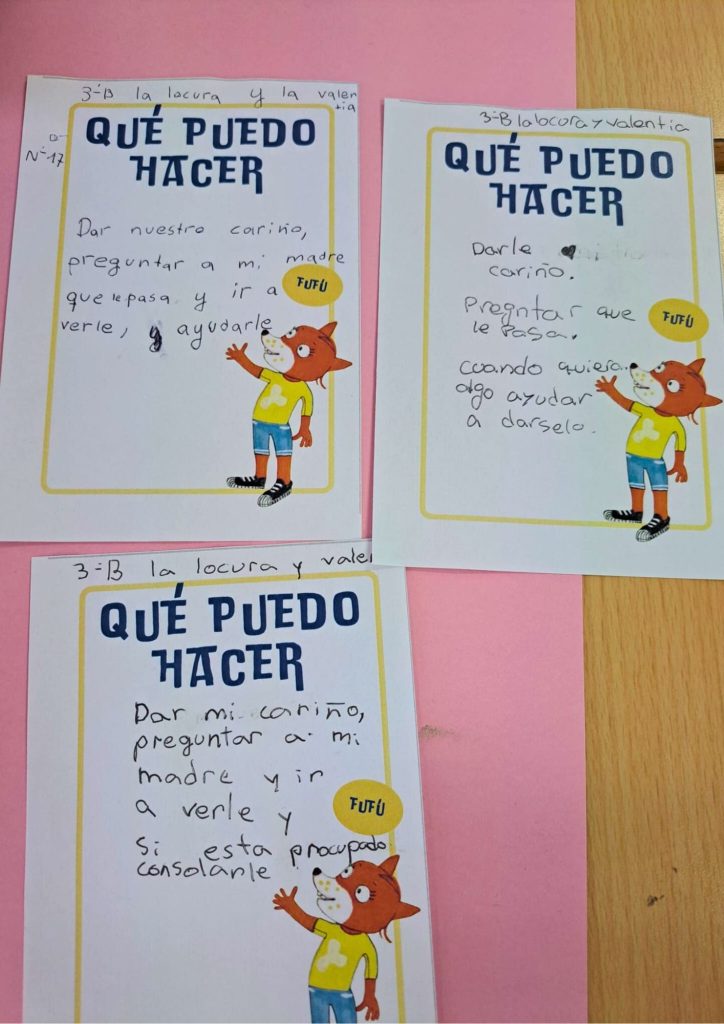 3-B la locura y la valen
tia
Nº-17
QUÉ PUEDO
HACER
Dar nuestro cariño,
preguntar a mi madre
que le pasa y ir a
verle, y ayudarle
FUFÚ
3-B la locura y valentia
QUÉ PUEDO
HACER
Darle
cariño.
Pregntar que
le pasa.
cuando quiera
algo ayudar
a darselo.
FUFÚ
3-B la locura y valen
QUÉ PUEDO
HACER
Dar mi cariño,
preguntar a mi
madre y ir
a verle y
Si esta procupado
consolarle
FUFÚ